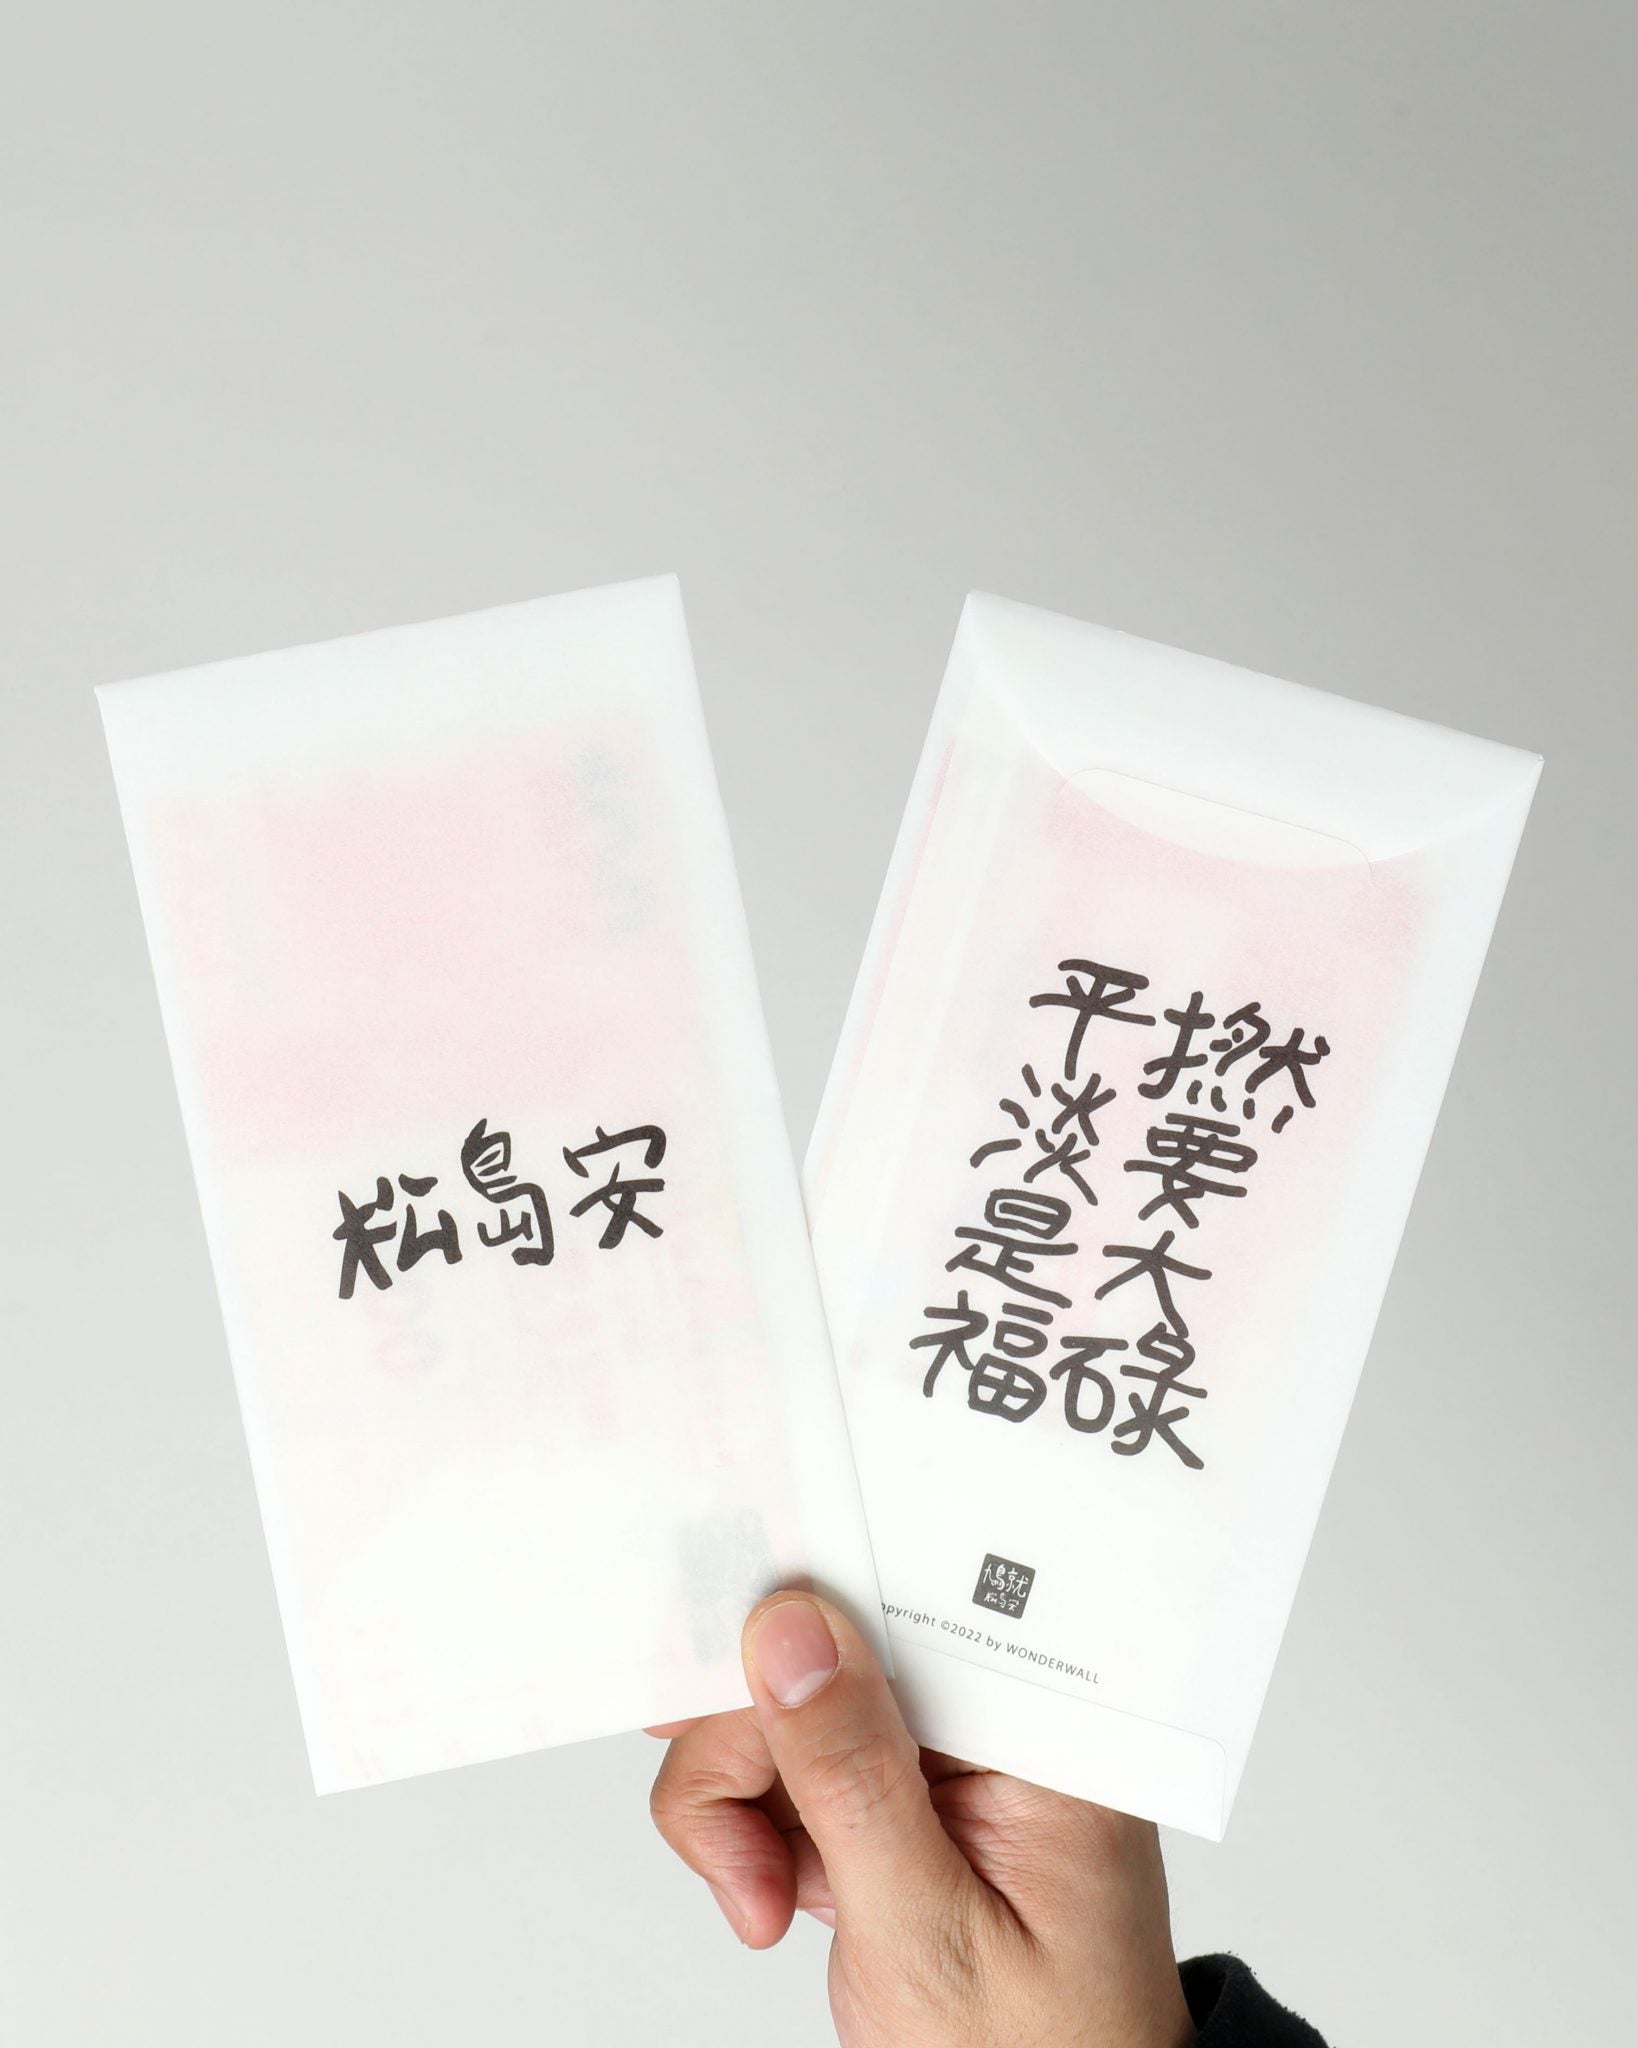 松島安
撚要大碌
平淡是福
鳩就
松島安
opyright ©2022 by WONDERWALL